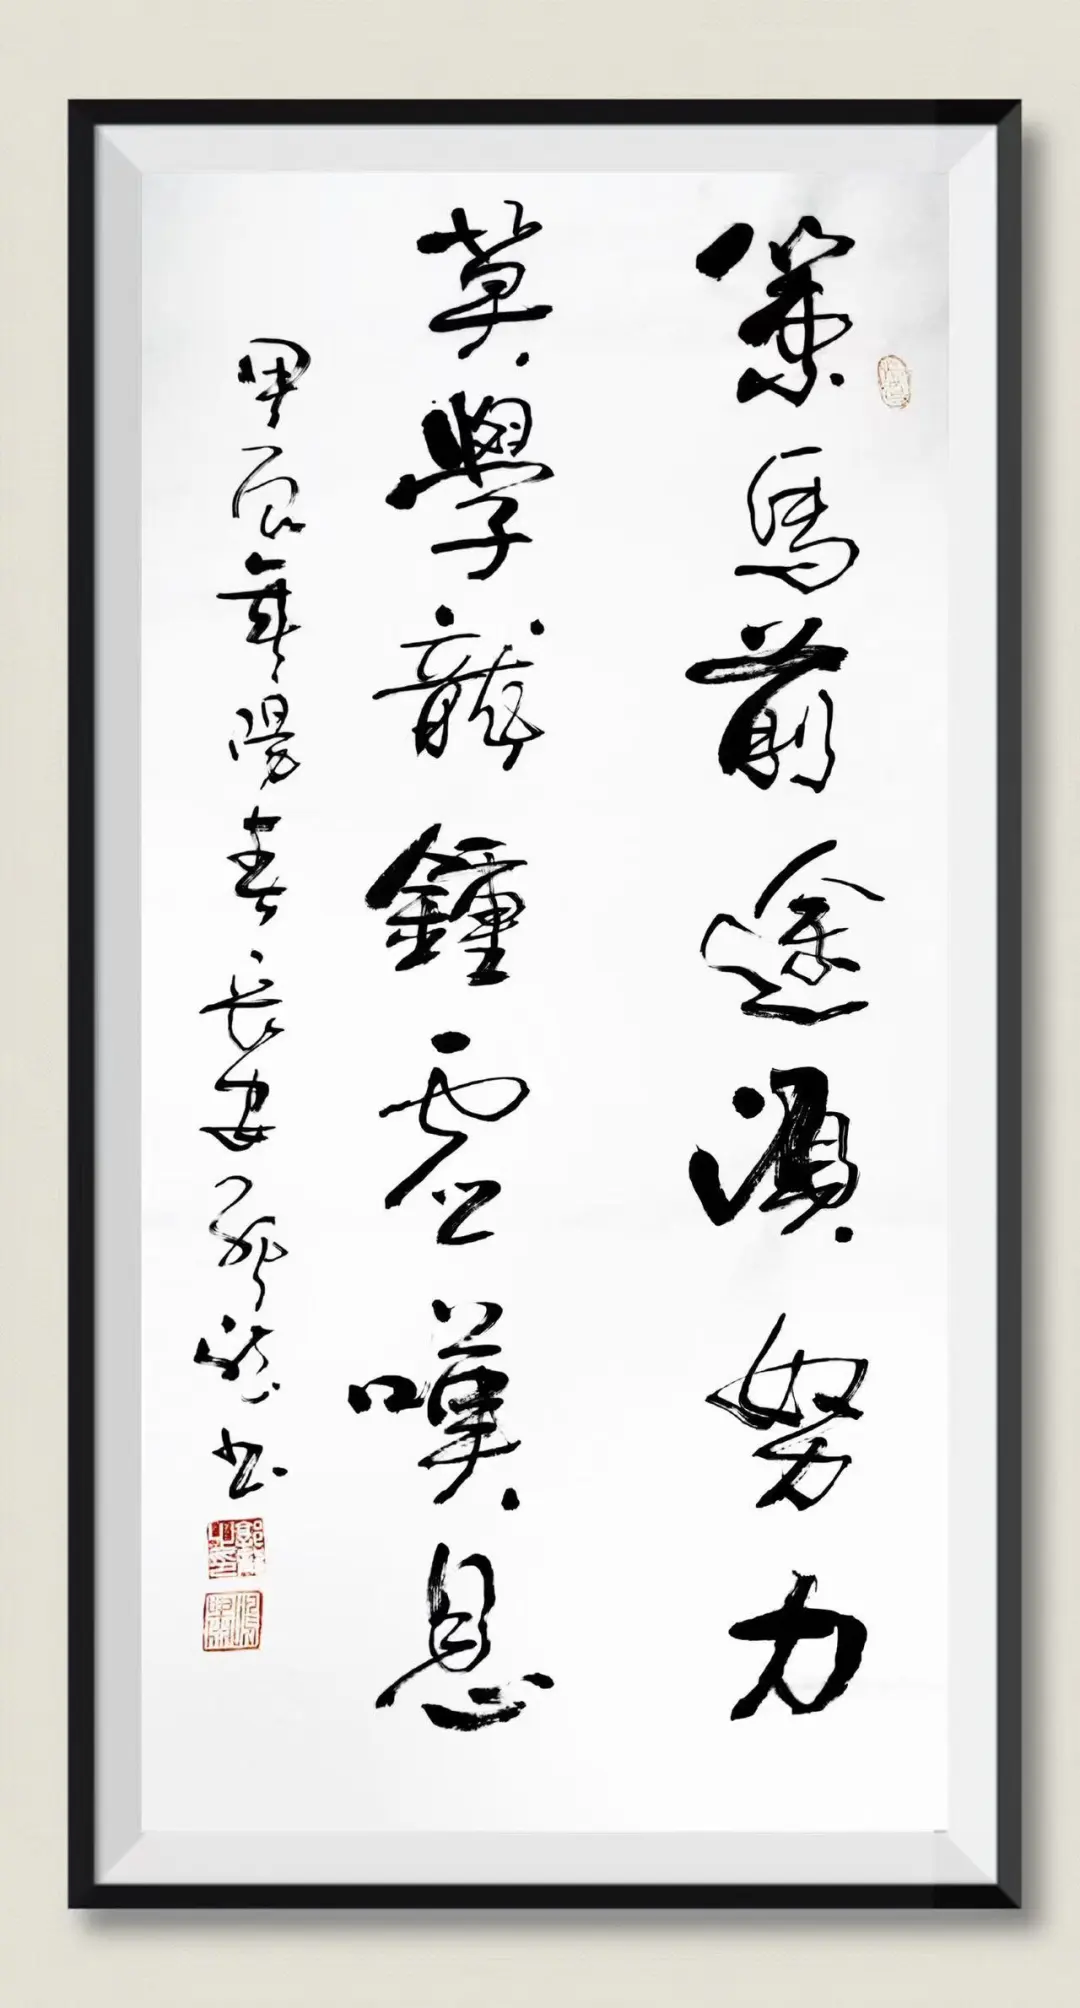 策馬前途須努力
莫學龍鍾虛嘆息
甲辰年陽春長安
書